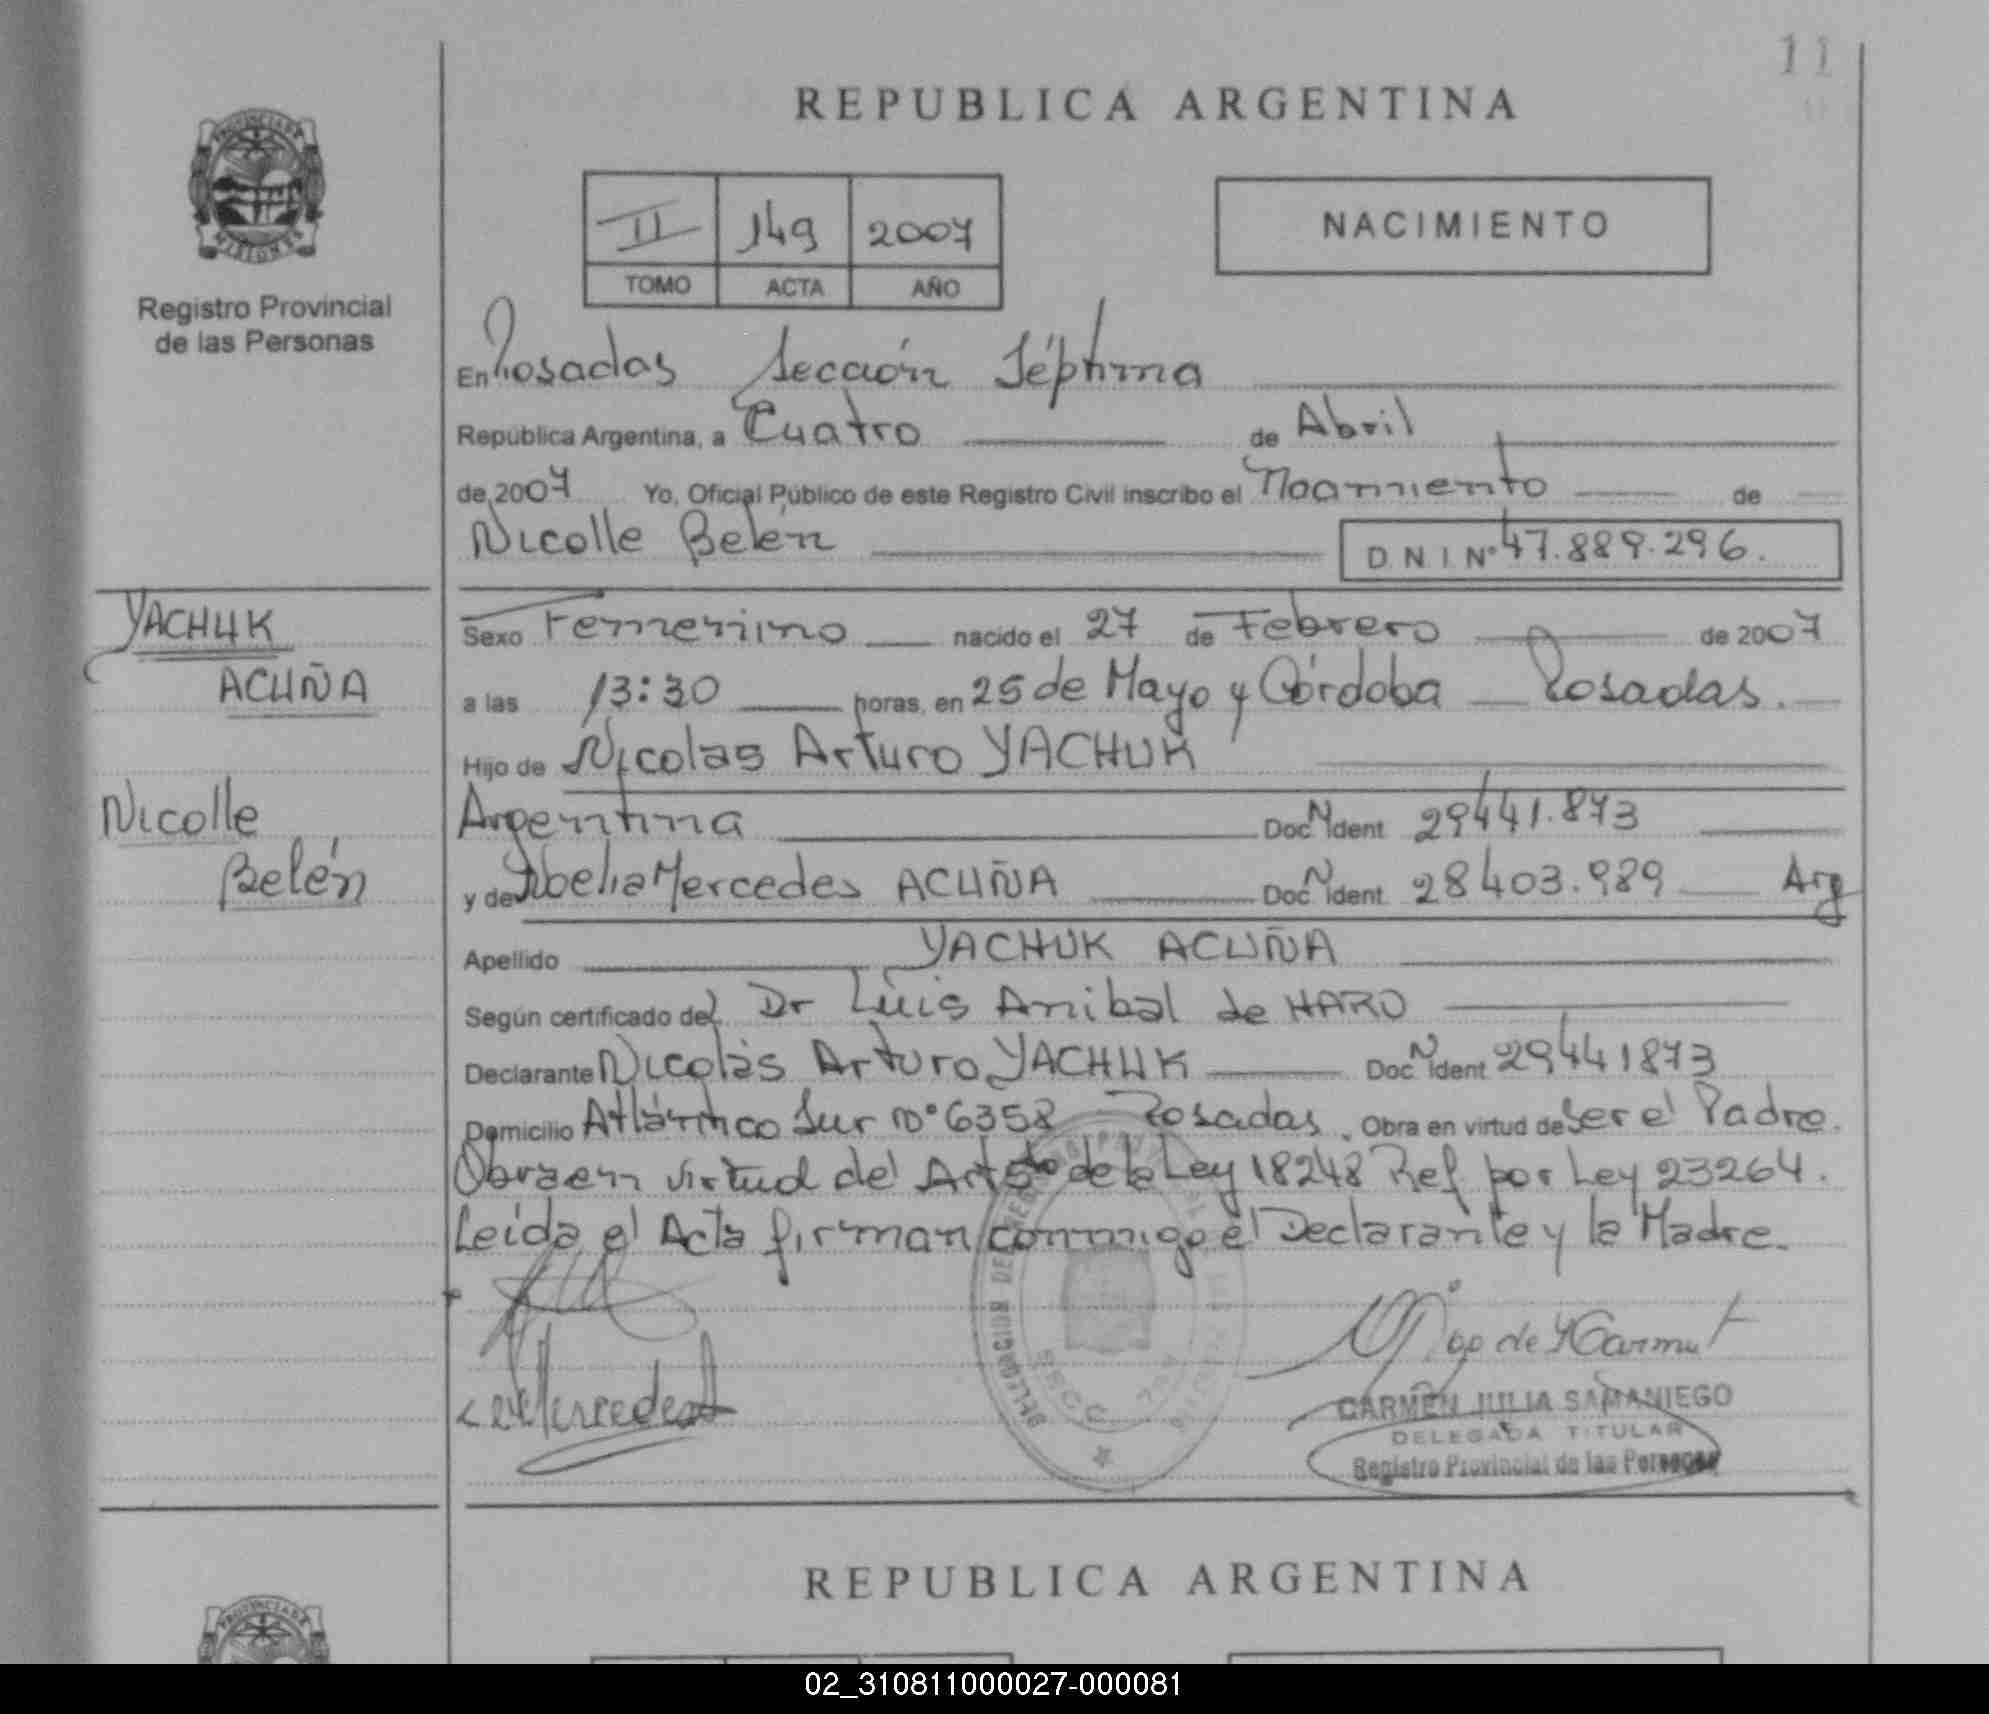 11
REPUBLICA ARGENTINA
PROVINCIA DE
MISIONES
Registro Provincial
de las Personas
II 149 2007
TOMO ACTA AÑO
NACIMIENTO
En Posadas Sección Séptima
República Argentina, a Cuatro de Abril
de 2007 Yo, Oficial Público de este Registro Civil inscribo el Nacimiento de
Nicolle Belén D.N.I. Nº 47.889.296.
YACHUK
ACUÑA
Nicolle
Belén
Sexo Femenino nacido el 27 de Febrero de 2007
a las 13:30 horas, en 25 de Mayo y Córdoba Posadas.
Hijo de Nicolas Arturo YACHUK
Argentina Doc. N Ident 29441.873
y de Noelia Mercedes ACUÑA Doc. N Ident. 28403.989 Arg
Apellido YACHUK ACUÑA
Según certificado del Dr Luis Anibal de HARO
Declarante Nicolás Arturo YACHUK Doc. N Ident 29441873
Domicilio Atlántico Sur Nº 6358 Posadas. Obra en virtud de ser el Padre.
Obra en virtud del Art 5to de la Ley 18248 Ref por Ley 23264.
Leída el Acta firman conmigo el Declarante y la Madre.
CARMEN JULIA SAMANIEGO
DELEGADA TITULAR
Registro Provincial de las Personas
REPUBLICA ARGENTINA
PROVINCIA DE
02_310811000027-000081